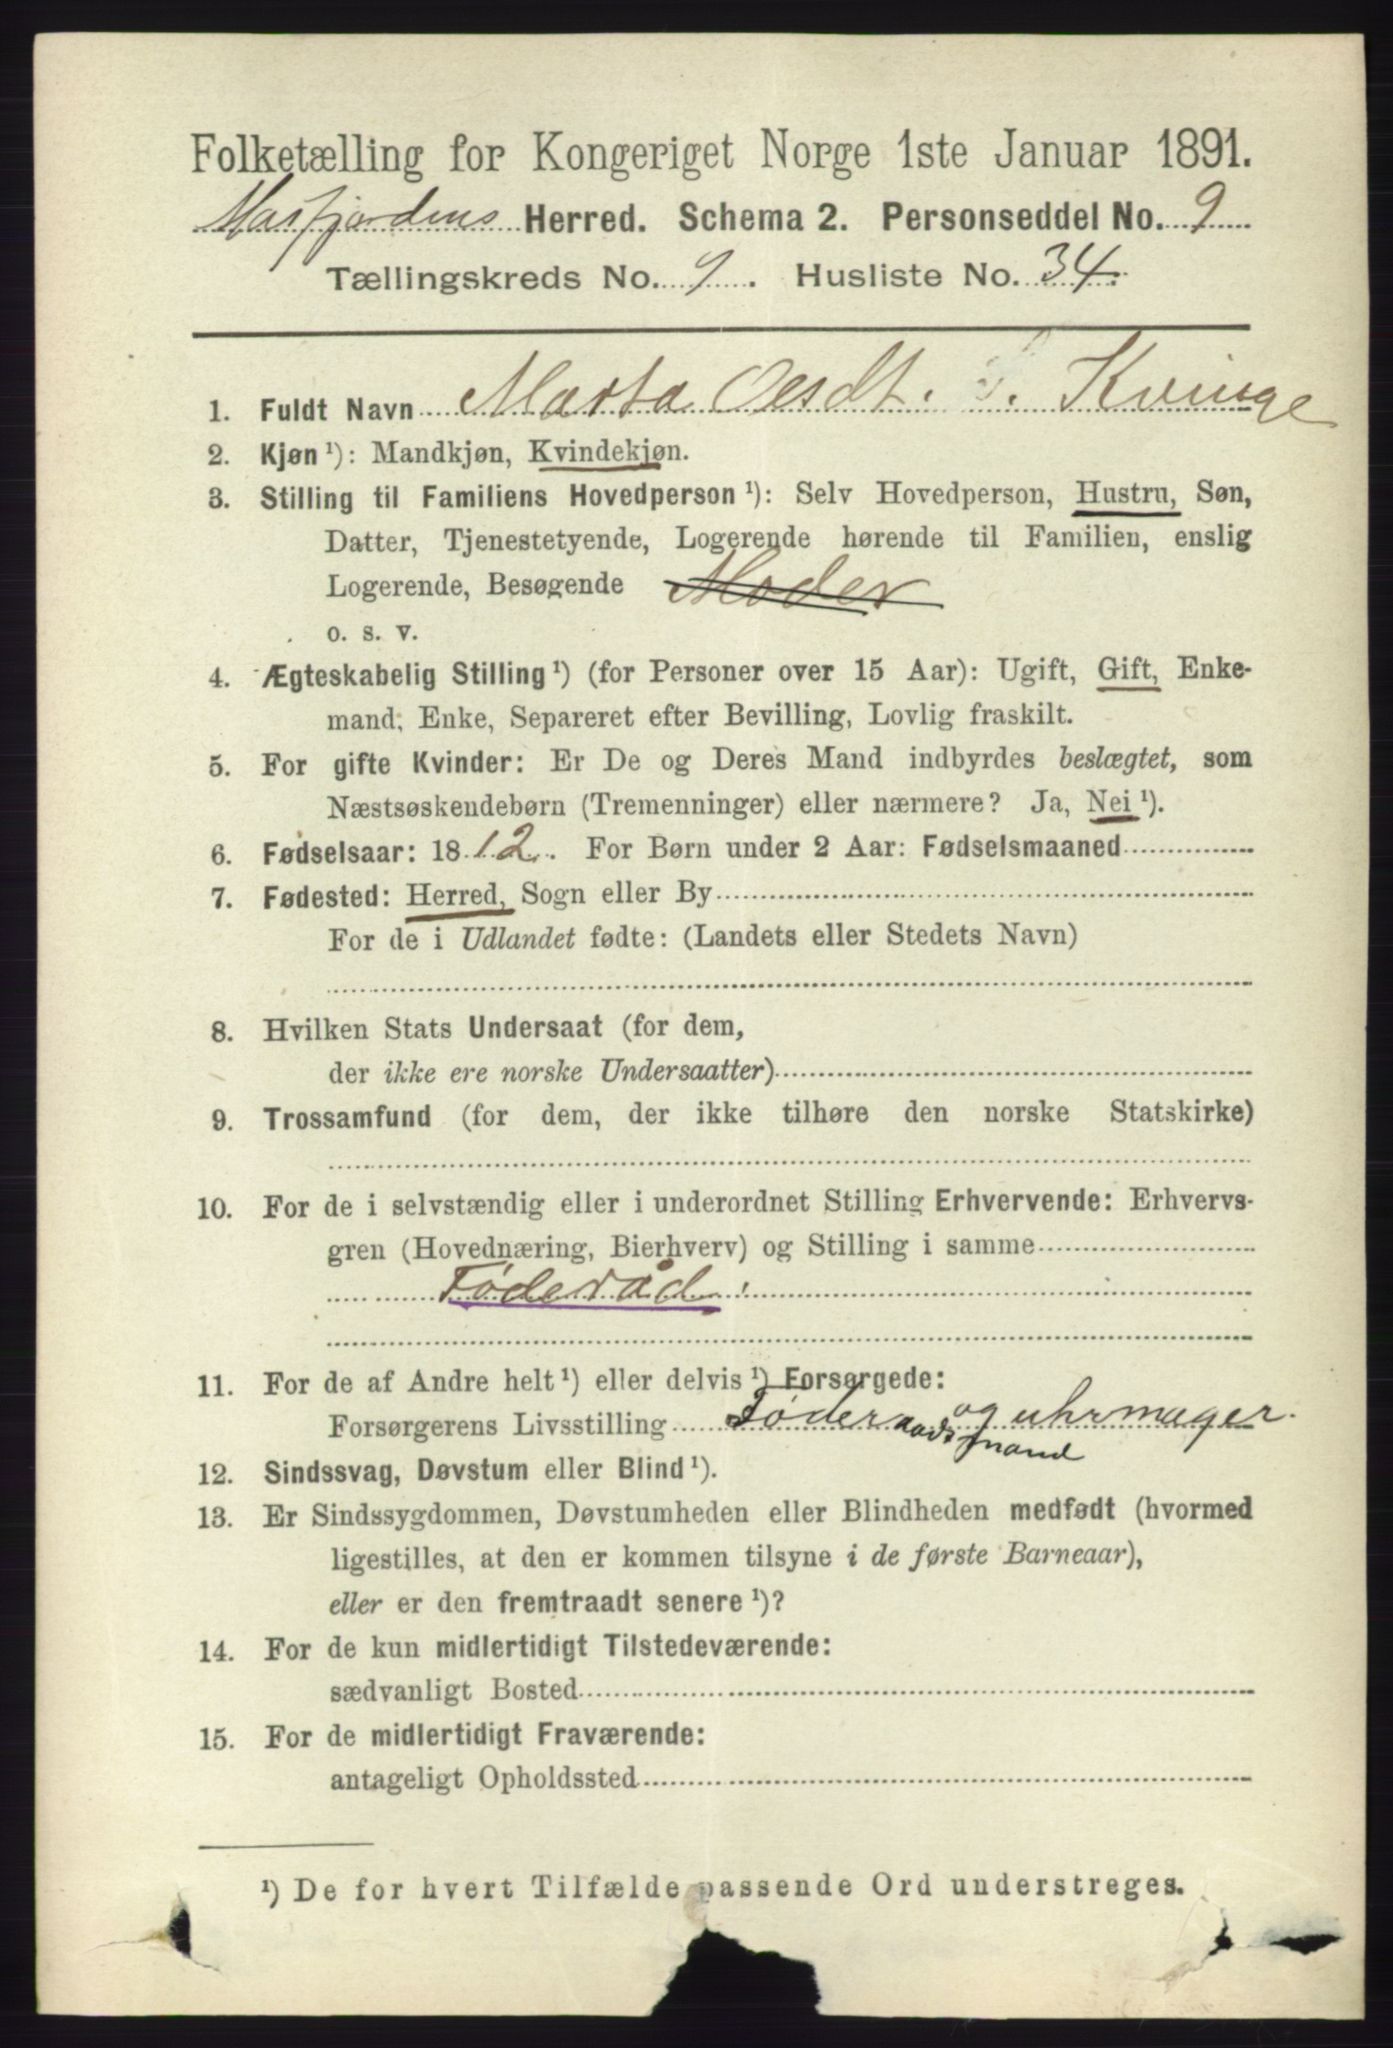 Folketælling for Kongeriget Norge 1ste Januar 1891.
Masfjordens Herred. Schema 2. Personseddel No. 9
Tællingskreds No. 9. Husliste No. 34.
1. Fuldt Navn Marta Oesdt. Kvinge
2. Kjøn ¹): Mandkjøn, Kvindekjøn.
3. Stilling til Familiens Hovedperson ¹): Selv Hovedperson, Hustru, Søn,
Datter, Tjenestetyende, Logerende hørende til Familien, enslig
Logerende, Besøgende Moder
o. s. v.
4. Ægteskabelig Stilling ¹) (for Personer over 15 Aar): Ugift, Gift, Enke-
mand, Enke, Separeret efter Bevilling, Lovlig fraskilt.
5. For gifte Kvinder: Er De og Deres Mand indbyrdes beslægtet, som
Næstsøskendebørn (Tremenninger) eller nærmere? Ja, Nei ¹).
6. Fødselsaar: 1812. For Børn under 2 Aar: Fødselsmaaned
7. Fødested: Herred, Sogn eller By
For de i Udlandet fødte: (Landets eller Stedets Navn)
8. Hvilken Stats Undersaat (for dem,
der ikke ere norske Undersaatter)
9. Trossamfund (for dem, der ikke tilhøre den norske Statskirke)
10. For de i selvstændig eller i underordnet Stilling Erhvervende: Erhvervs-
gren (Hovednæring, Bierhverv) og Stilling i samme
Føderåd
11. For de af Andre helt ¹) eller delvis ¹) Forsørgede:
Forsørgerens Livsstilling Føderaadsmand og uhrmager.
12. Sindssvag, Døvstum eller Blind ¹).
13. Er Sindssygdommen, Døvstumheden eller Blindheden medfødt (hvormed
ligestilles, at den er kommen tilsyne i de første Barneaar),
eller er den fremtraadt senere ¹)?
14. For de kun midlertidigt Tilstedeværende:
sædvanligt Bosted
15. For de midlertidigt Fraværende:
antageligt Opholdssted
¹) De for hvert Tilfælde passende Ord understreges.